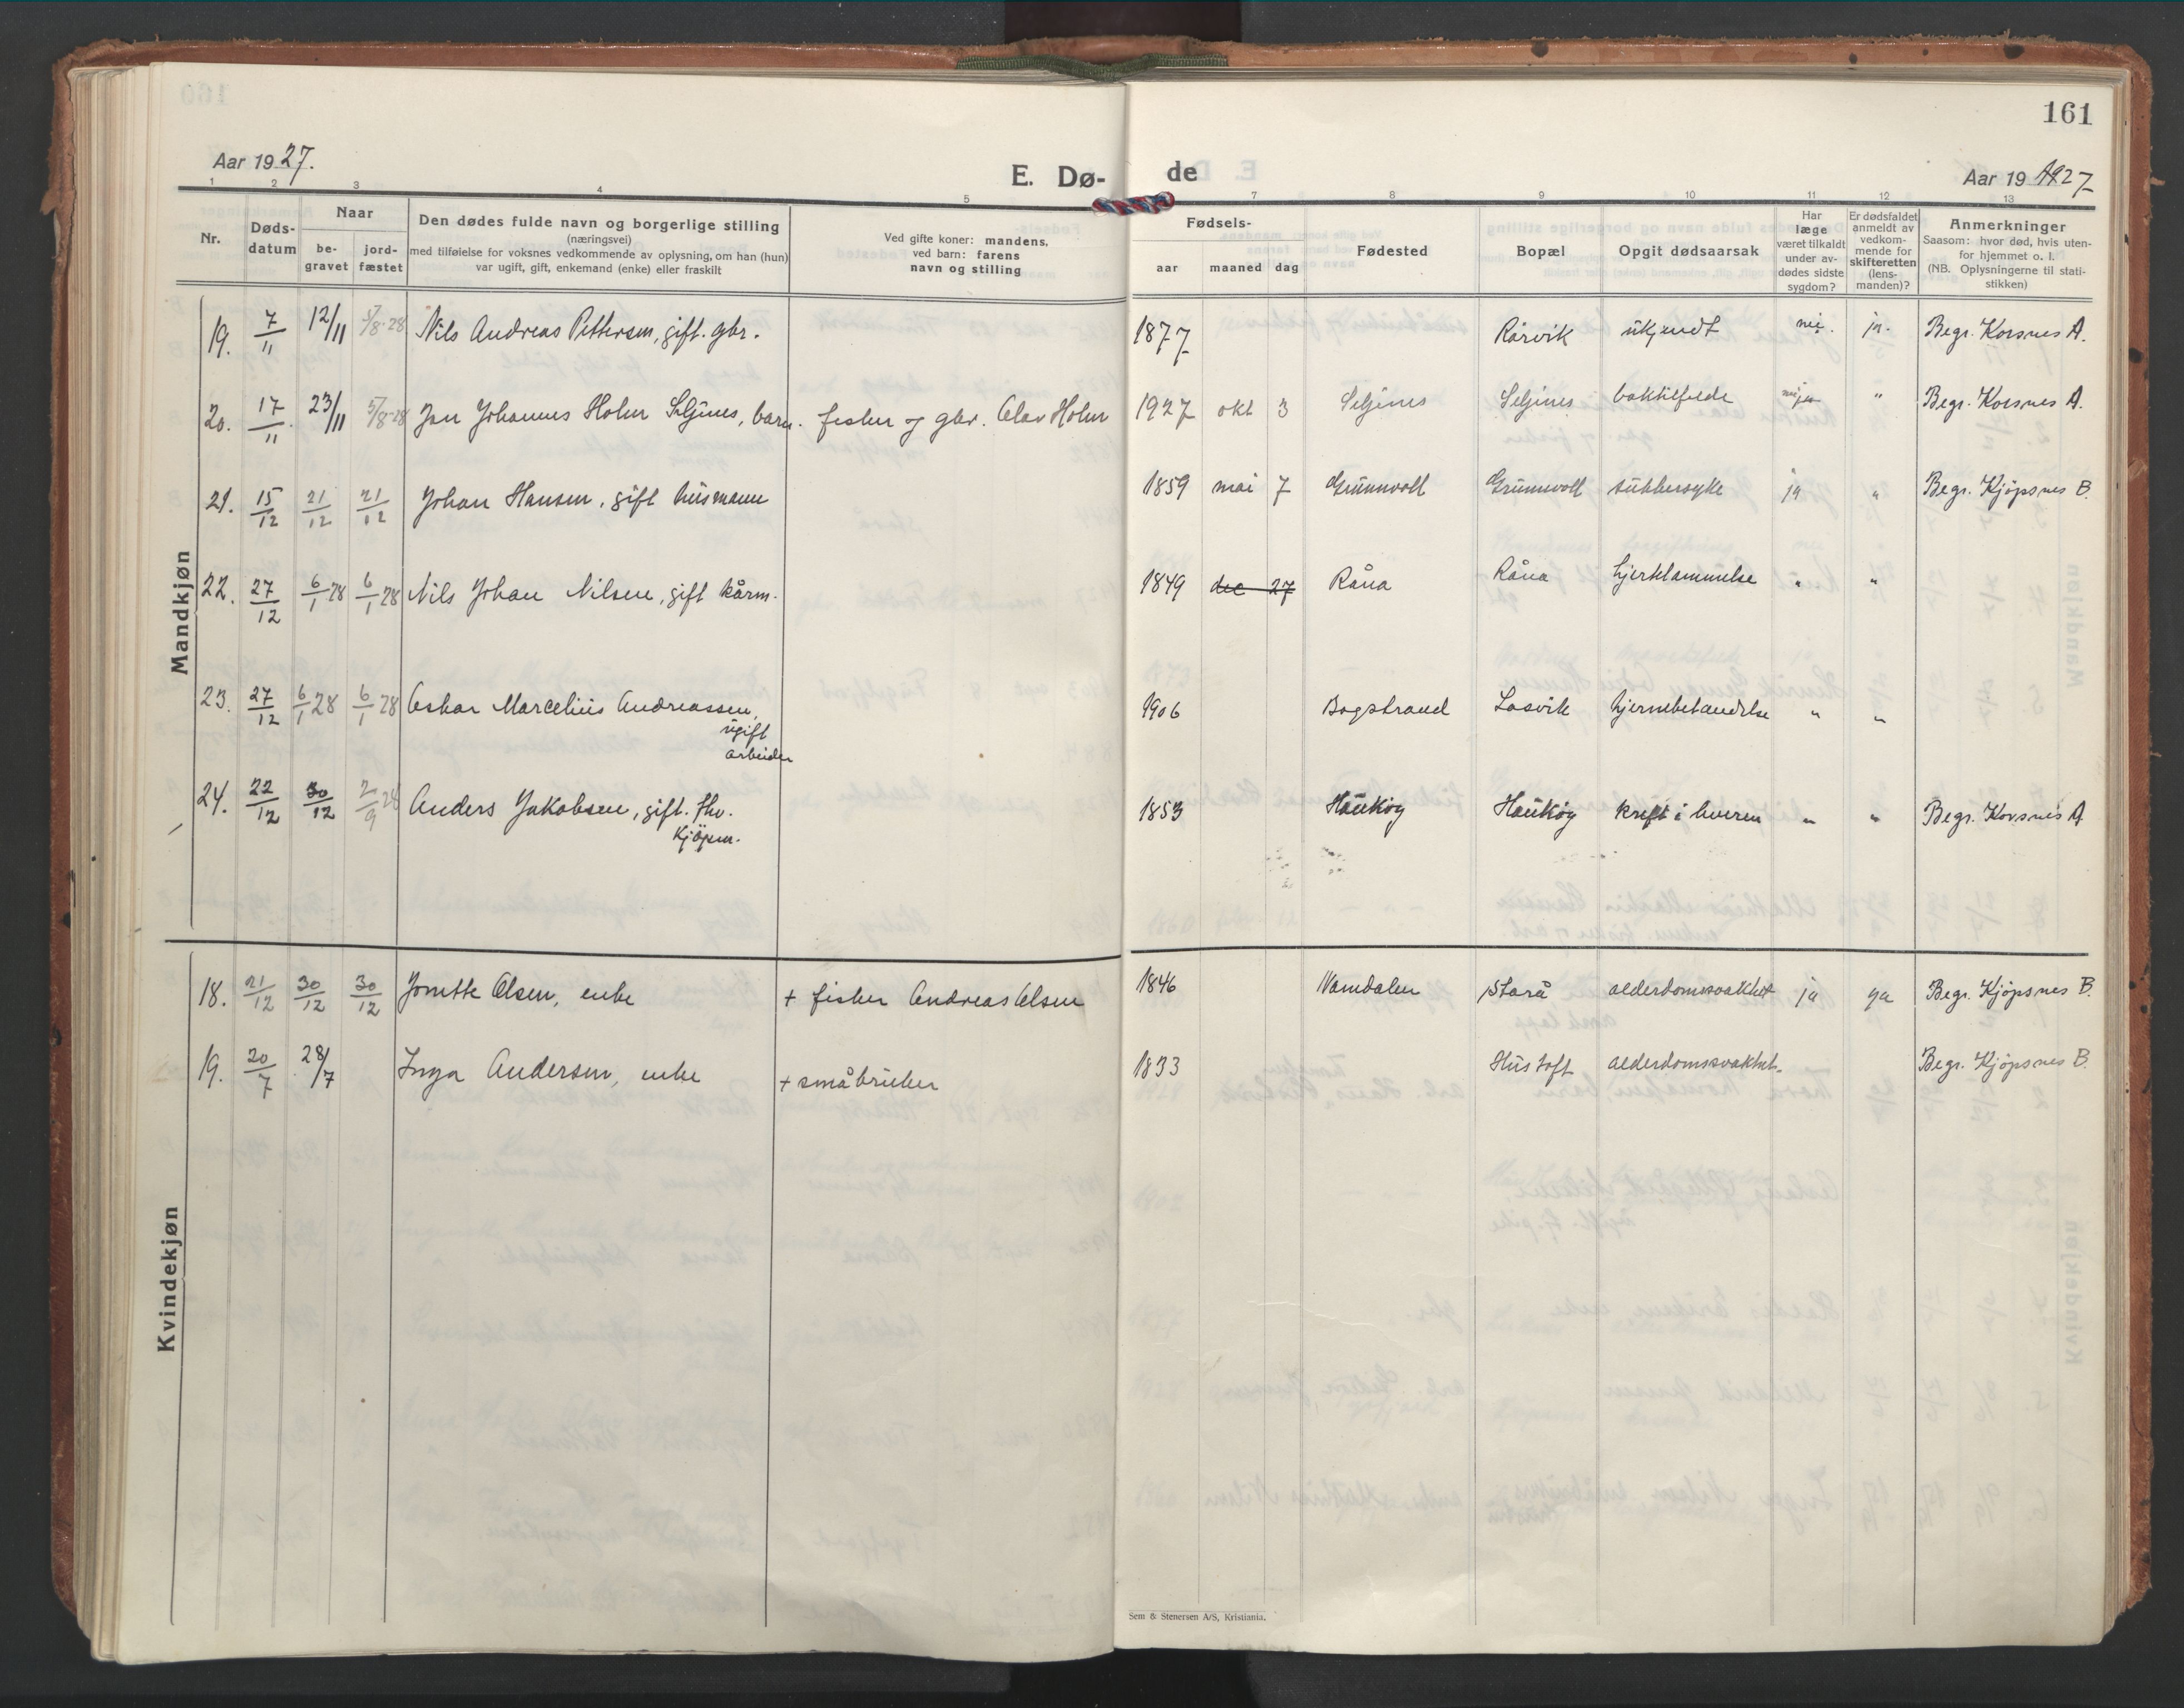 161
Aar 1927.
E. Dø-
de
Aar 19 1927
1 2 3 4 5 7 8 9 10 11 12 13
Nr.
Døds-
datum
Naar
be-
gravet
jord-
fæstet
Den dødes fulde navn og borgerlige stilling
(næringsvei)
med tilføielse for voksnes vedkommende av oplysning, om han (hun)
var ugift, gift, enkemand (enke) eller fraskilt
Ved gifte koner: mandens,
ved barn: farens
navn og stilling
Fødsels-
aar maaned dag
Fødested
Bopæl
Opgit dødsaarsak
Har
læge
været tilkaldt
under av-
dødes sidste
sygdom?
Er dødsfaldet
anmeldt av
vedkom-
mende for
skifteretten
(lens-
manden)?
Anmerkninger
Saasom: hvor død, hvis uten-
for hjemmet o. l.
(NB. Oplysningerne til stati-
stikken)
Mandkjøn
19. 7/11 12/11 5/8-28 Nils Andreas Pettersen, gift. gbr. 1877 Rårvik ukjendt nei. ja. Begr. Korsnes A.
20. 17/11 23/11 5/8-28 Jan Johannes Holm Seljenes, barn. fisker og gbr. Olav Holm 1927 okt 3 Seljenes Seljenes " Begr. Korsnes A.
21. 15/12 21/12 21/12 Johan Hansen, gift husmann 1859 mai 7 Grunnvoll Grunnvoll sukkersyke ja " Begr. Kjöpsnes B.
22. 27/12 6/1 28 6/1 28 Nils Johan Nilsen, gift kårm. 1849 dec 27 Råna Råna hjertelammelse " "
23. 27/12 6/1 28 6/1 28 Oskar Marcelius Andreassen,
ugift
arbeider
1906 Bogstrand Losvik hjernebetendelse " "
24. 22/12 30/12 2/9 28 Anders Jakobsen, gift. fhv.
kjöpm.
1853 Haukøy Haukøy kreft i leveren " " Begr. Korsnes A
Kvindekjøn
18. 21/12 30/12 30/12 Jonette Olsen, enke + fisker Andreas Olsen 1846 Namdalen Starå alderdomssvakhet ja ja Begr. Kjöpsnes B.
19. 20/7 28/7 Inga Andersen, enke + småbruker 1833 Hustoft alderdomssvakhet Begr. Kjöpsnes B.
Sem & Stenersen A/S, Kristiania.